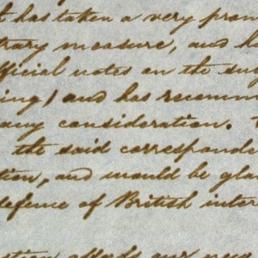 t has taken a very prom
trary measure, and ha
official notes on the sug
ing) and has recomm
any consideration.
the said corresponde
tion, and would be gla
defence of British inter